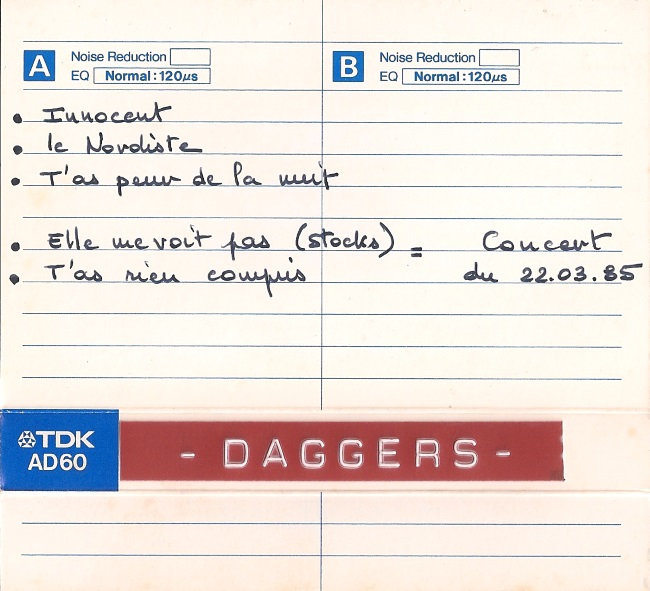 A Noise Reduction
EQ Normal:120µs
B Noise Reduction
EQ Normal:120µs
• Innocent
• le Nordiste
• T'as peur de la nuit
• Elle me voit pas (stocks) = Concert
• T'as rien compris du 22.03.85
TDK
AD60
- DAGGERS -